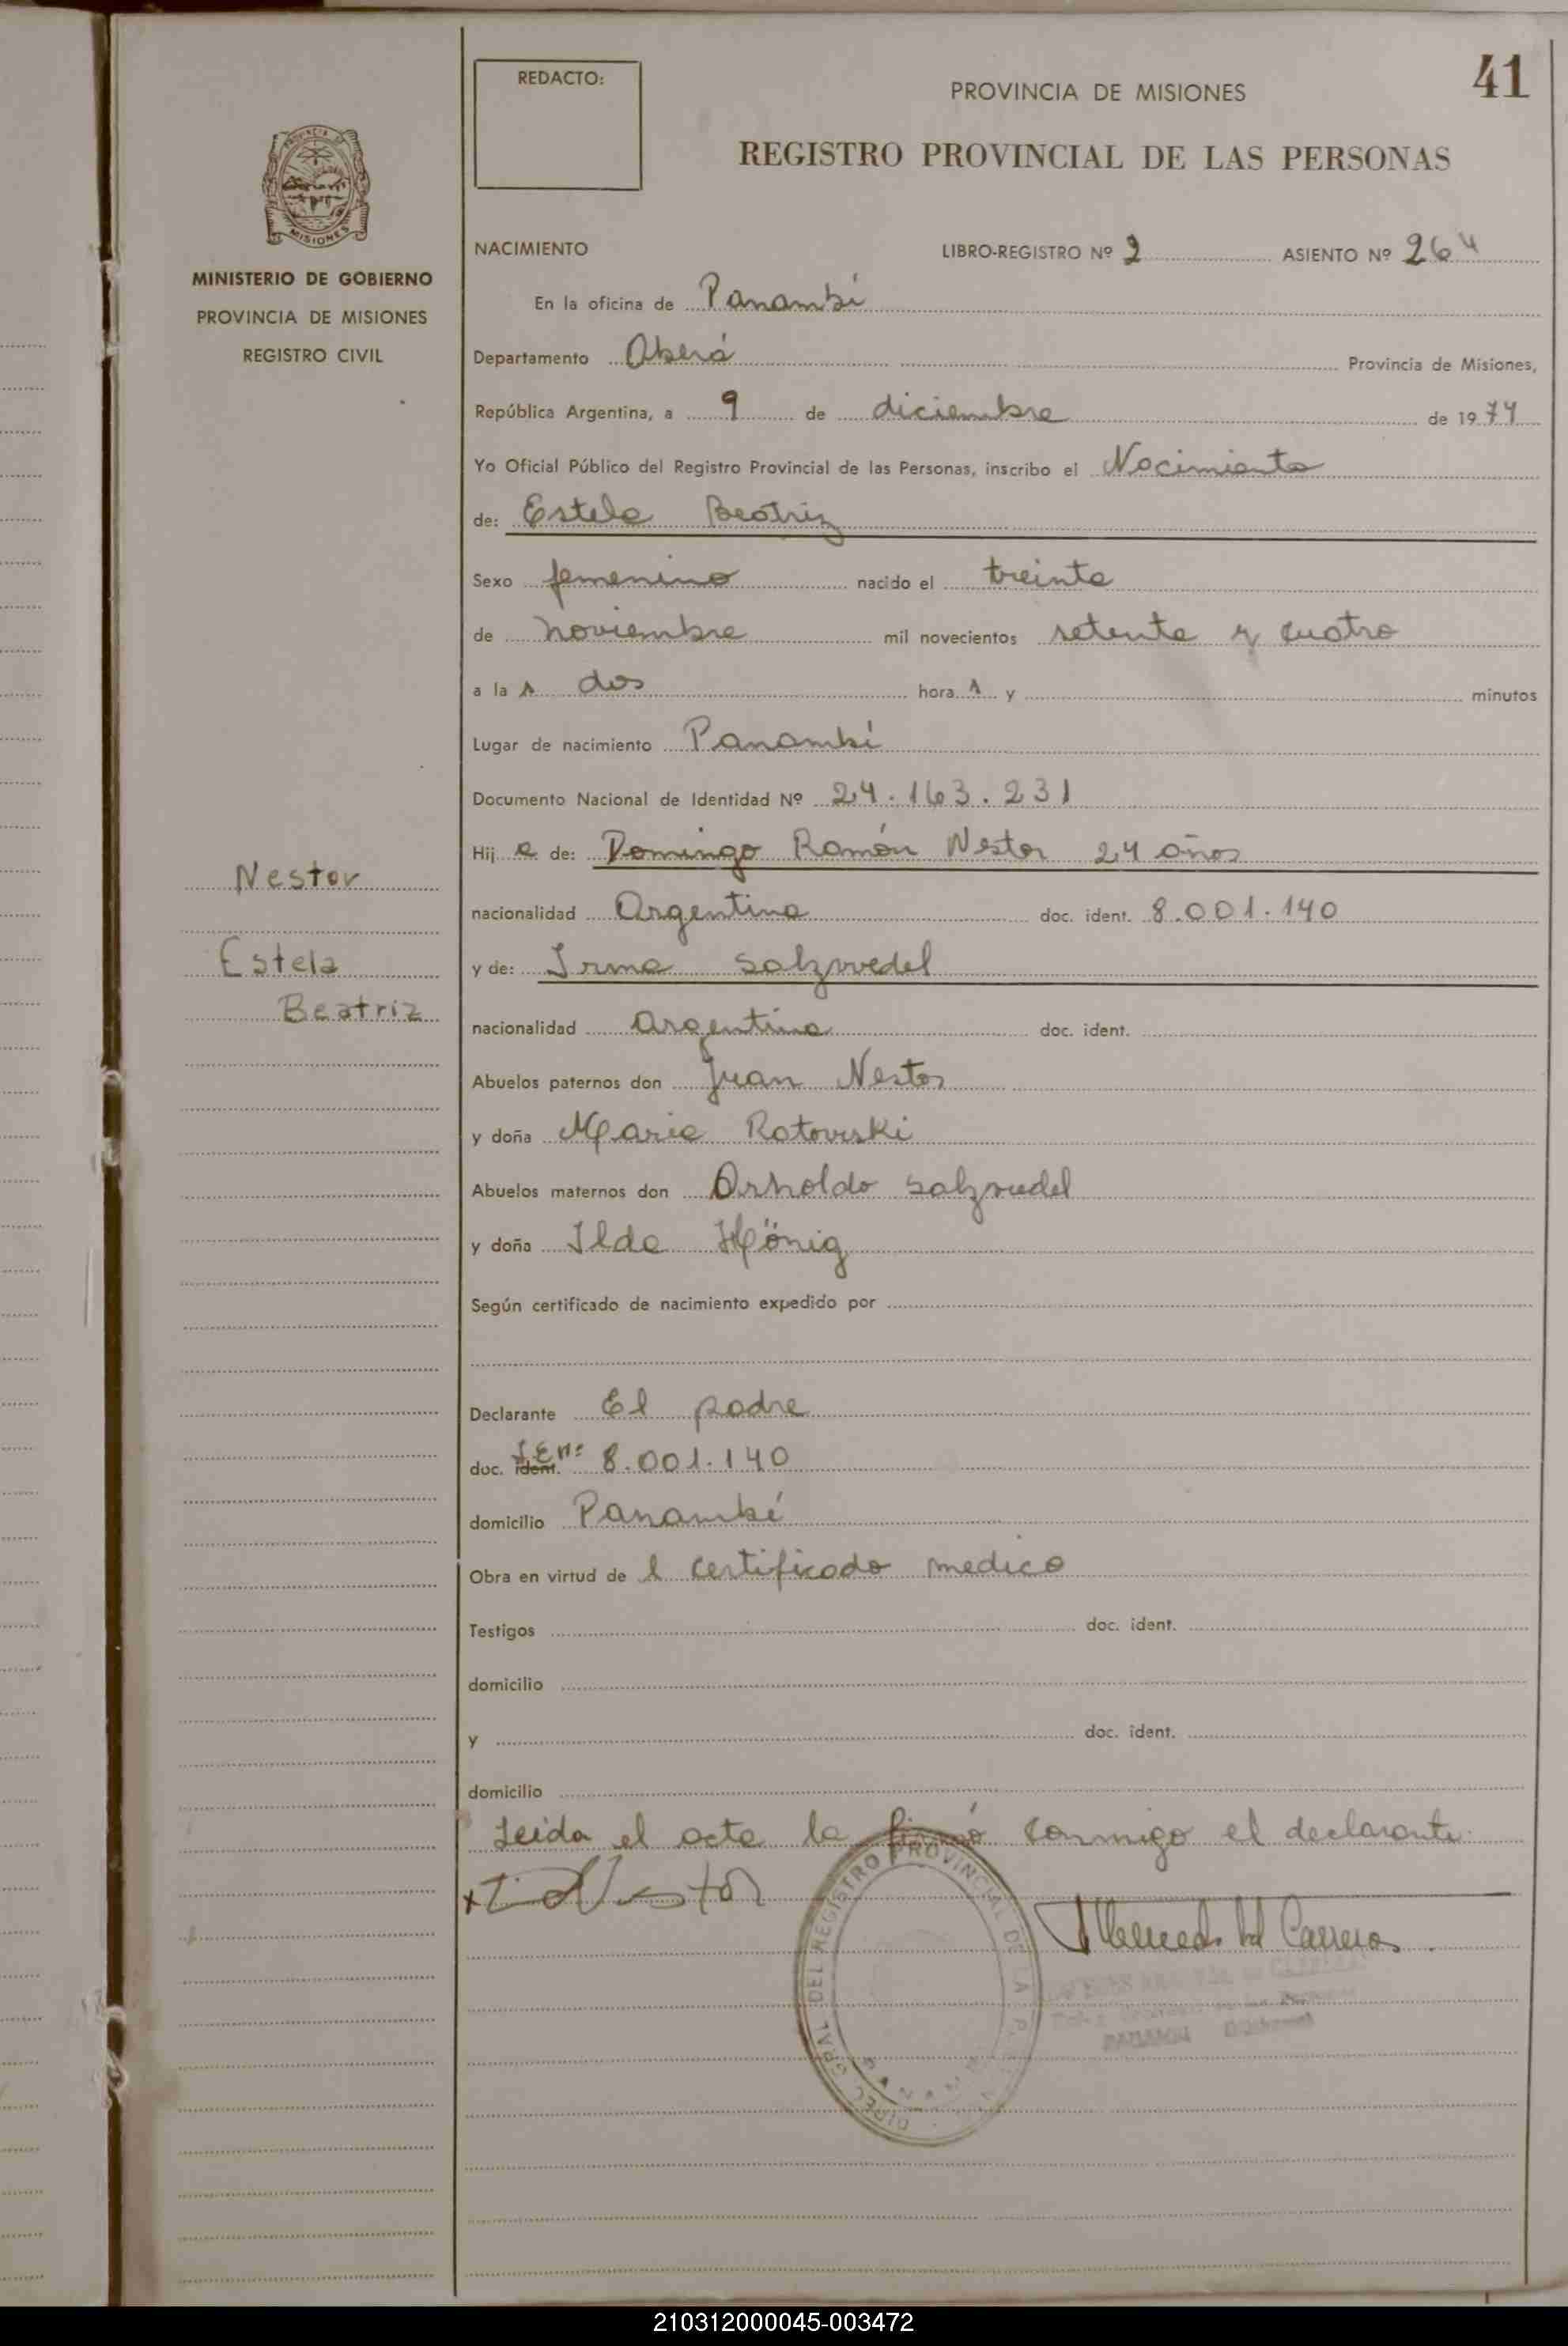 41
REDACTO:
PROVINCIA DE MISIONES
REGISTRO PROVINCIAL DE LAS PERSONAS
MISIONES
MINISTERIO DE GOBIERNO
PROVINCIA DE MISIONES
REGISTRO CIVIL
NACIMIENTO LIBRO-REGISTRO Nº 2 ASIENTO Nº 264
En la oficina de Panambí
Departamento Oberá Provincia de Misiones,
República Argentina, a 9 de diciembre de 1974
Yo Oficial Público del Registro Provincial de las Personas, inscribo el Nacimiento
de: Estela Beatriz
Sexo femenino nacido el treinta
de noviembre mil novecientos setenta y cuatro
a la s dos hora s y minutos
Lugar de nacimiento Panambí
Documento Nacional de Identidad Nº 24.163.231
Hij a de: Domingo Ramón Nestor 24 años
Nestor
nacionalidad Argentina doc. ident. 8.001.140
Estela
y de: Irma Salzwedel
Beatriz
nacionalidad argentina doc. ident.
Abuelos paternos don Juan Nestor
y doña Maria Rotowski
Abuelos maternos don Arnoldo Salzwedel
y doña Ilda Hönig
Según certificado de nacimiento expedido por
Declarante El padre
doc. ident. 8.001.140
domicilio Panambí
Obra en virtud de l certificado medico
Testigos doc. ident.
domicilio
y doc. ident.
domicilio
Leida el acta la firmó conmigo el declarante.
DIREC. GRAL. DEL REGISTRO PROVINCIAL DE LA P
210312000045-003472